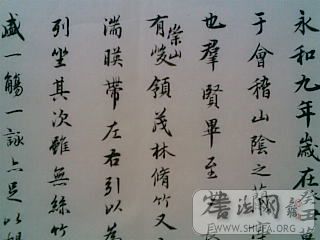 永和九年歲在癸丑
于會稽山陰之蘭
也羣賢畢至
有崇山峻領茂林脩竹又
湍暎帶左右引以為
列坐其次雖無絲竹
盛一觴一詠亦足以
書法
SHUFA.ORG